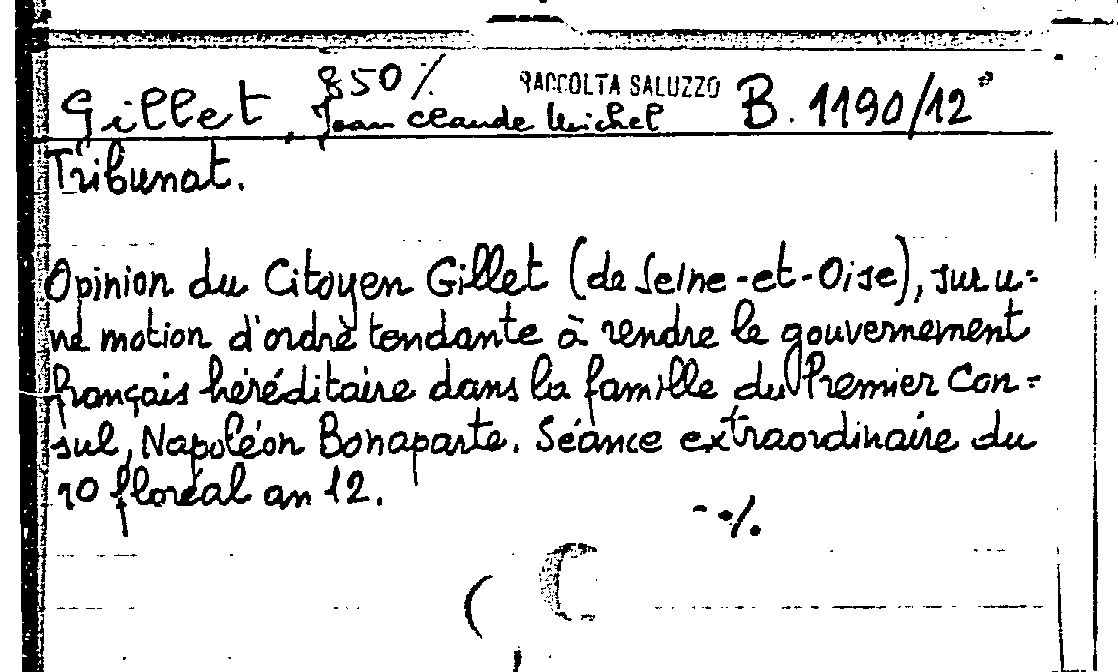 850 %
RACCOLTA SALUZZO
Gillet, Jean Claude Michel B. 1190/12°
Tribunat.
Opinion du Citoyen Gillet (de Seine-et-Oise), sur u=
ne motion d'ordre tendante à rendre le gouvernement
français héréditaire dans la famille du Premier Con=
sul, Napoléon Bonaparte. Séance extraordinaire du
10 floréal an 12.
-•/.